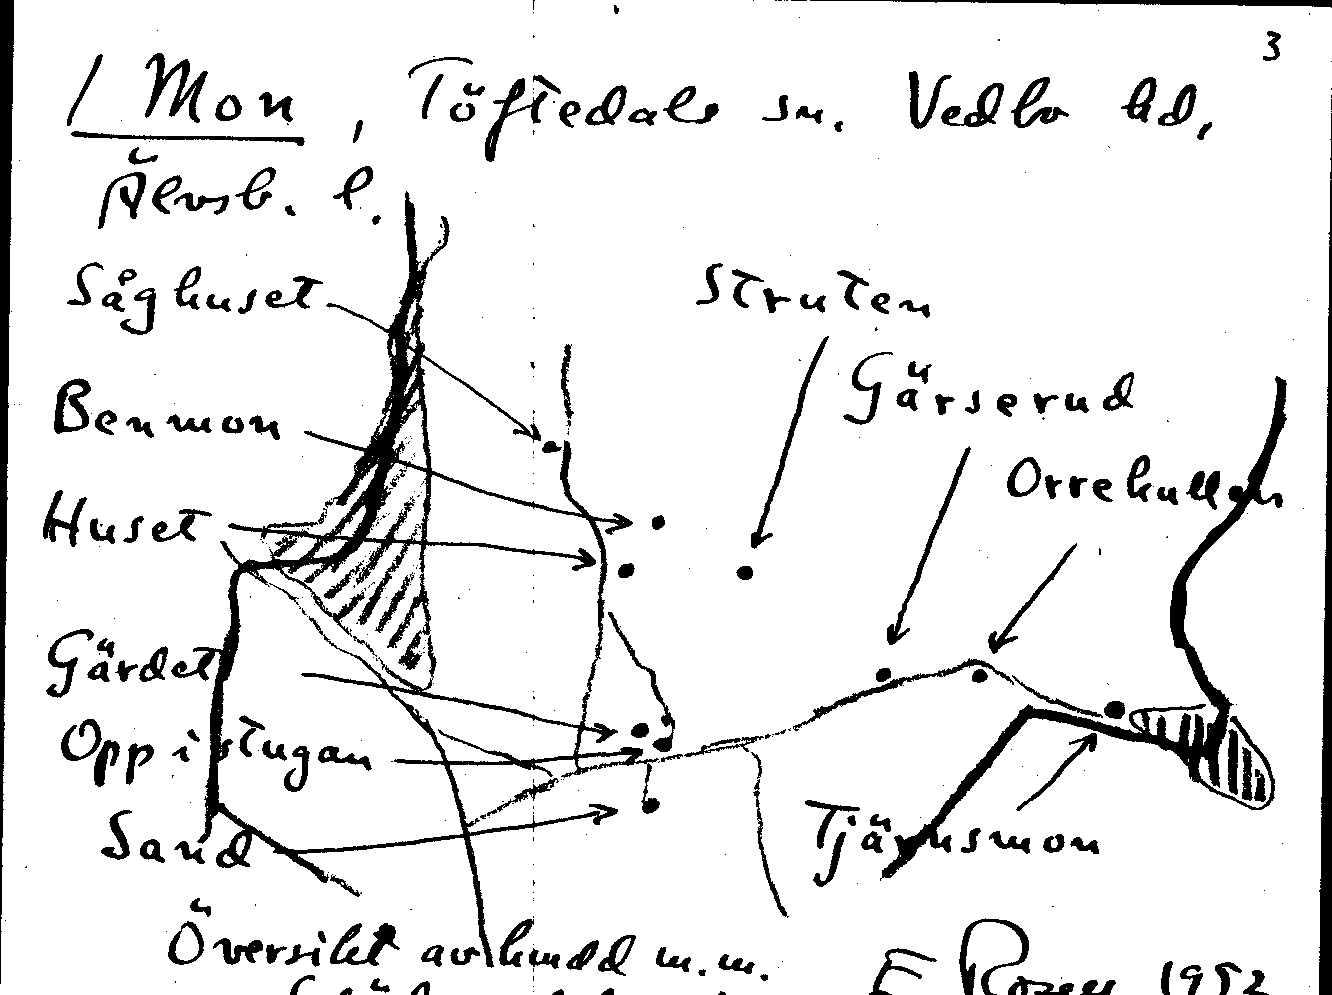 3
/ Mon, Töftedals sn. Vedbo hd,
Älvsb. l.
Såghuset
Struten
Gärserud
Benmon
Orrekullen
Huset
Gärdet
Opp i stugan
Tjärnsmon
Sand
Översikt av hmdd m.m.
E Rosen 1952